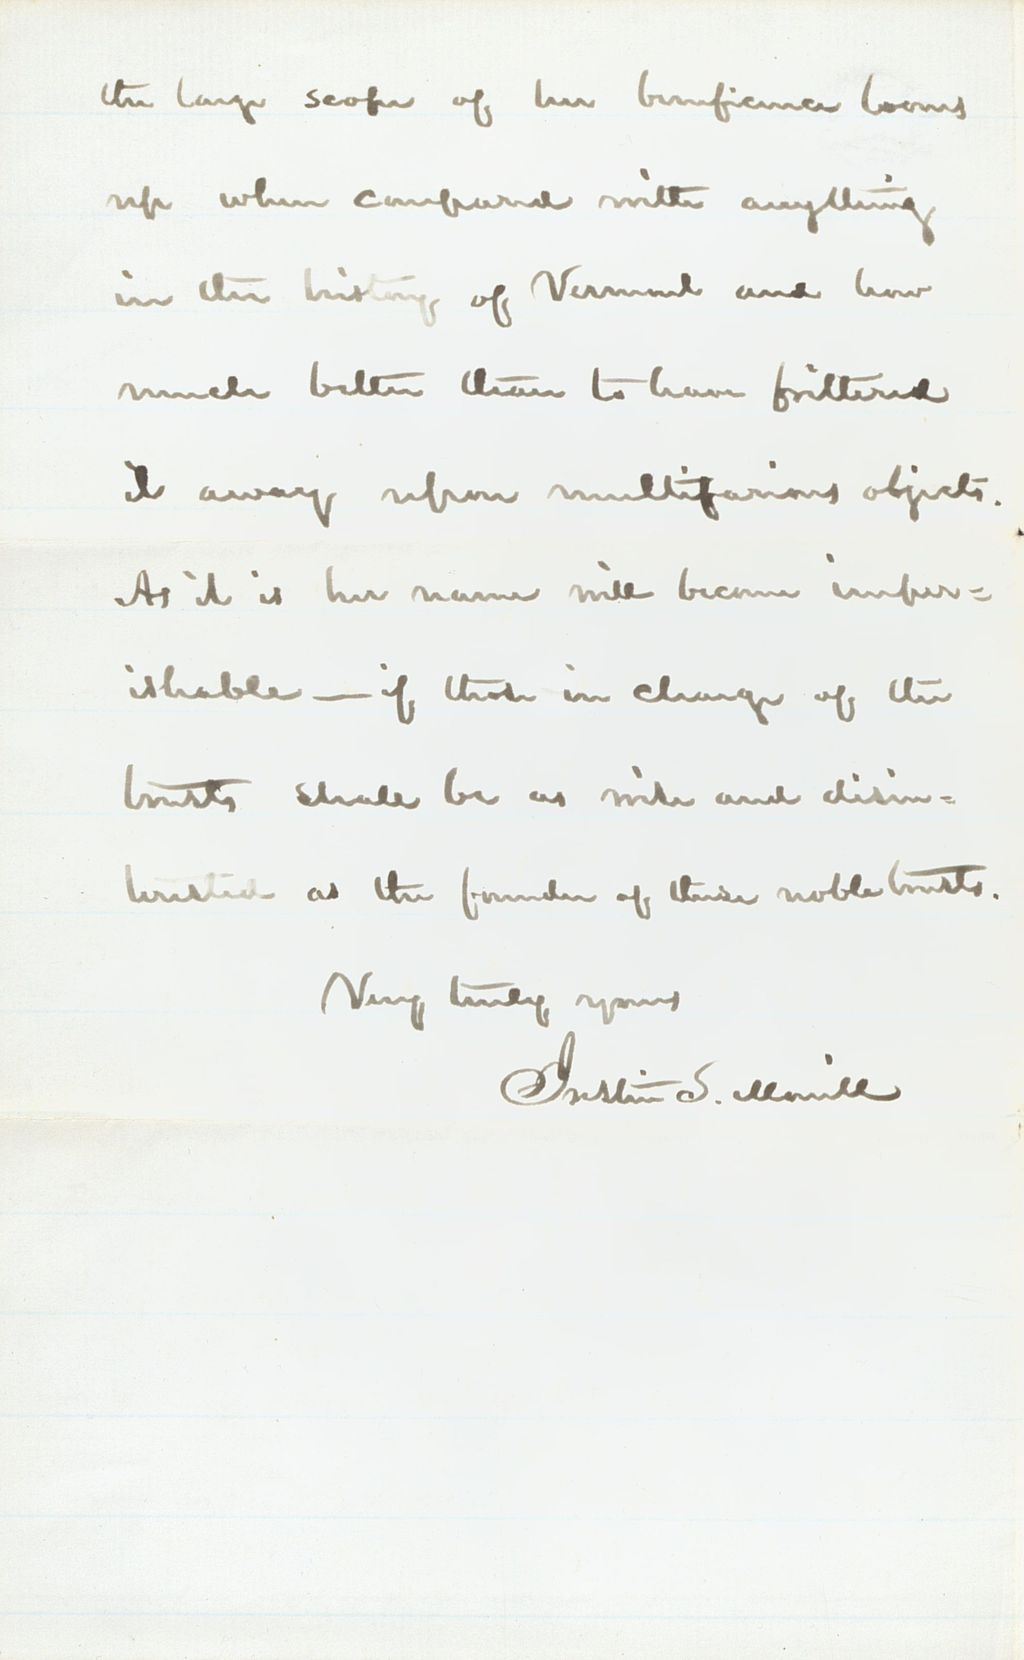 the large scope of her beneficence looms
up when compared with anything
in the history of Vermont and how
much better than to have frittered
it away upon multifarious objects.
As it is her name will become imper=
ishable — if those in charge of the
trusts shall be as wise and disin=
terested as the founder of these noble trusts.
Very truly yours
Justin S. Morrill